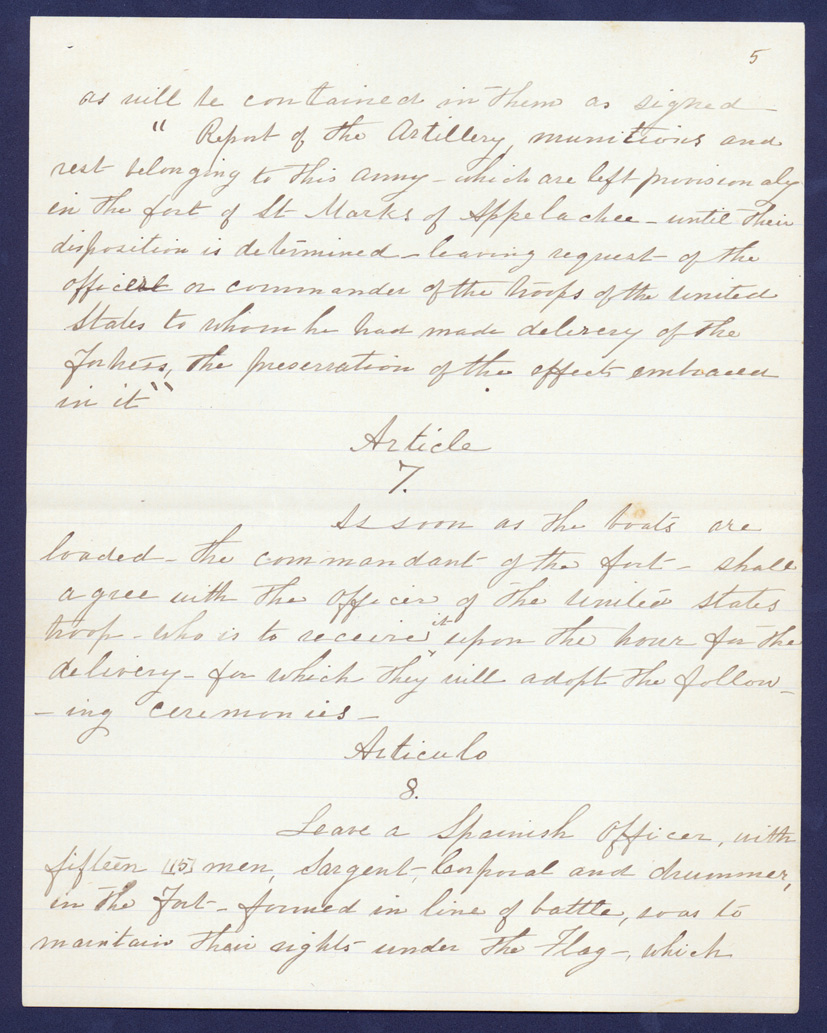 5
as will be contained in them as signed
" Report of the Artillery, munitions and
rest belonging to this army - which are left provisionaly
in the fort of St Marks of Appelachee - until their
disposition is determined - leaving request - of the
officer or commander of the troops of the united
States to whom he had made delivery of the
Fortress, the preservation of the effects embraced
in it"
Article
7.
As soon as the boats are
loaded - the commandant of the fort - shall
agree with the officer of the united states
troop - who is to receive it upon the hour for the
delivery - for which they will adopt the follow-
-ing ceremonies -
Articulo
8.
Leave a Spainish officer, with
fifteen [15] men, Sargent, Corporal and drummer,
in the Fort - formed in line of battle, so as to
maintain their rights under the Flag -, which